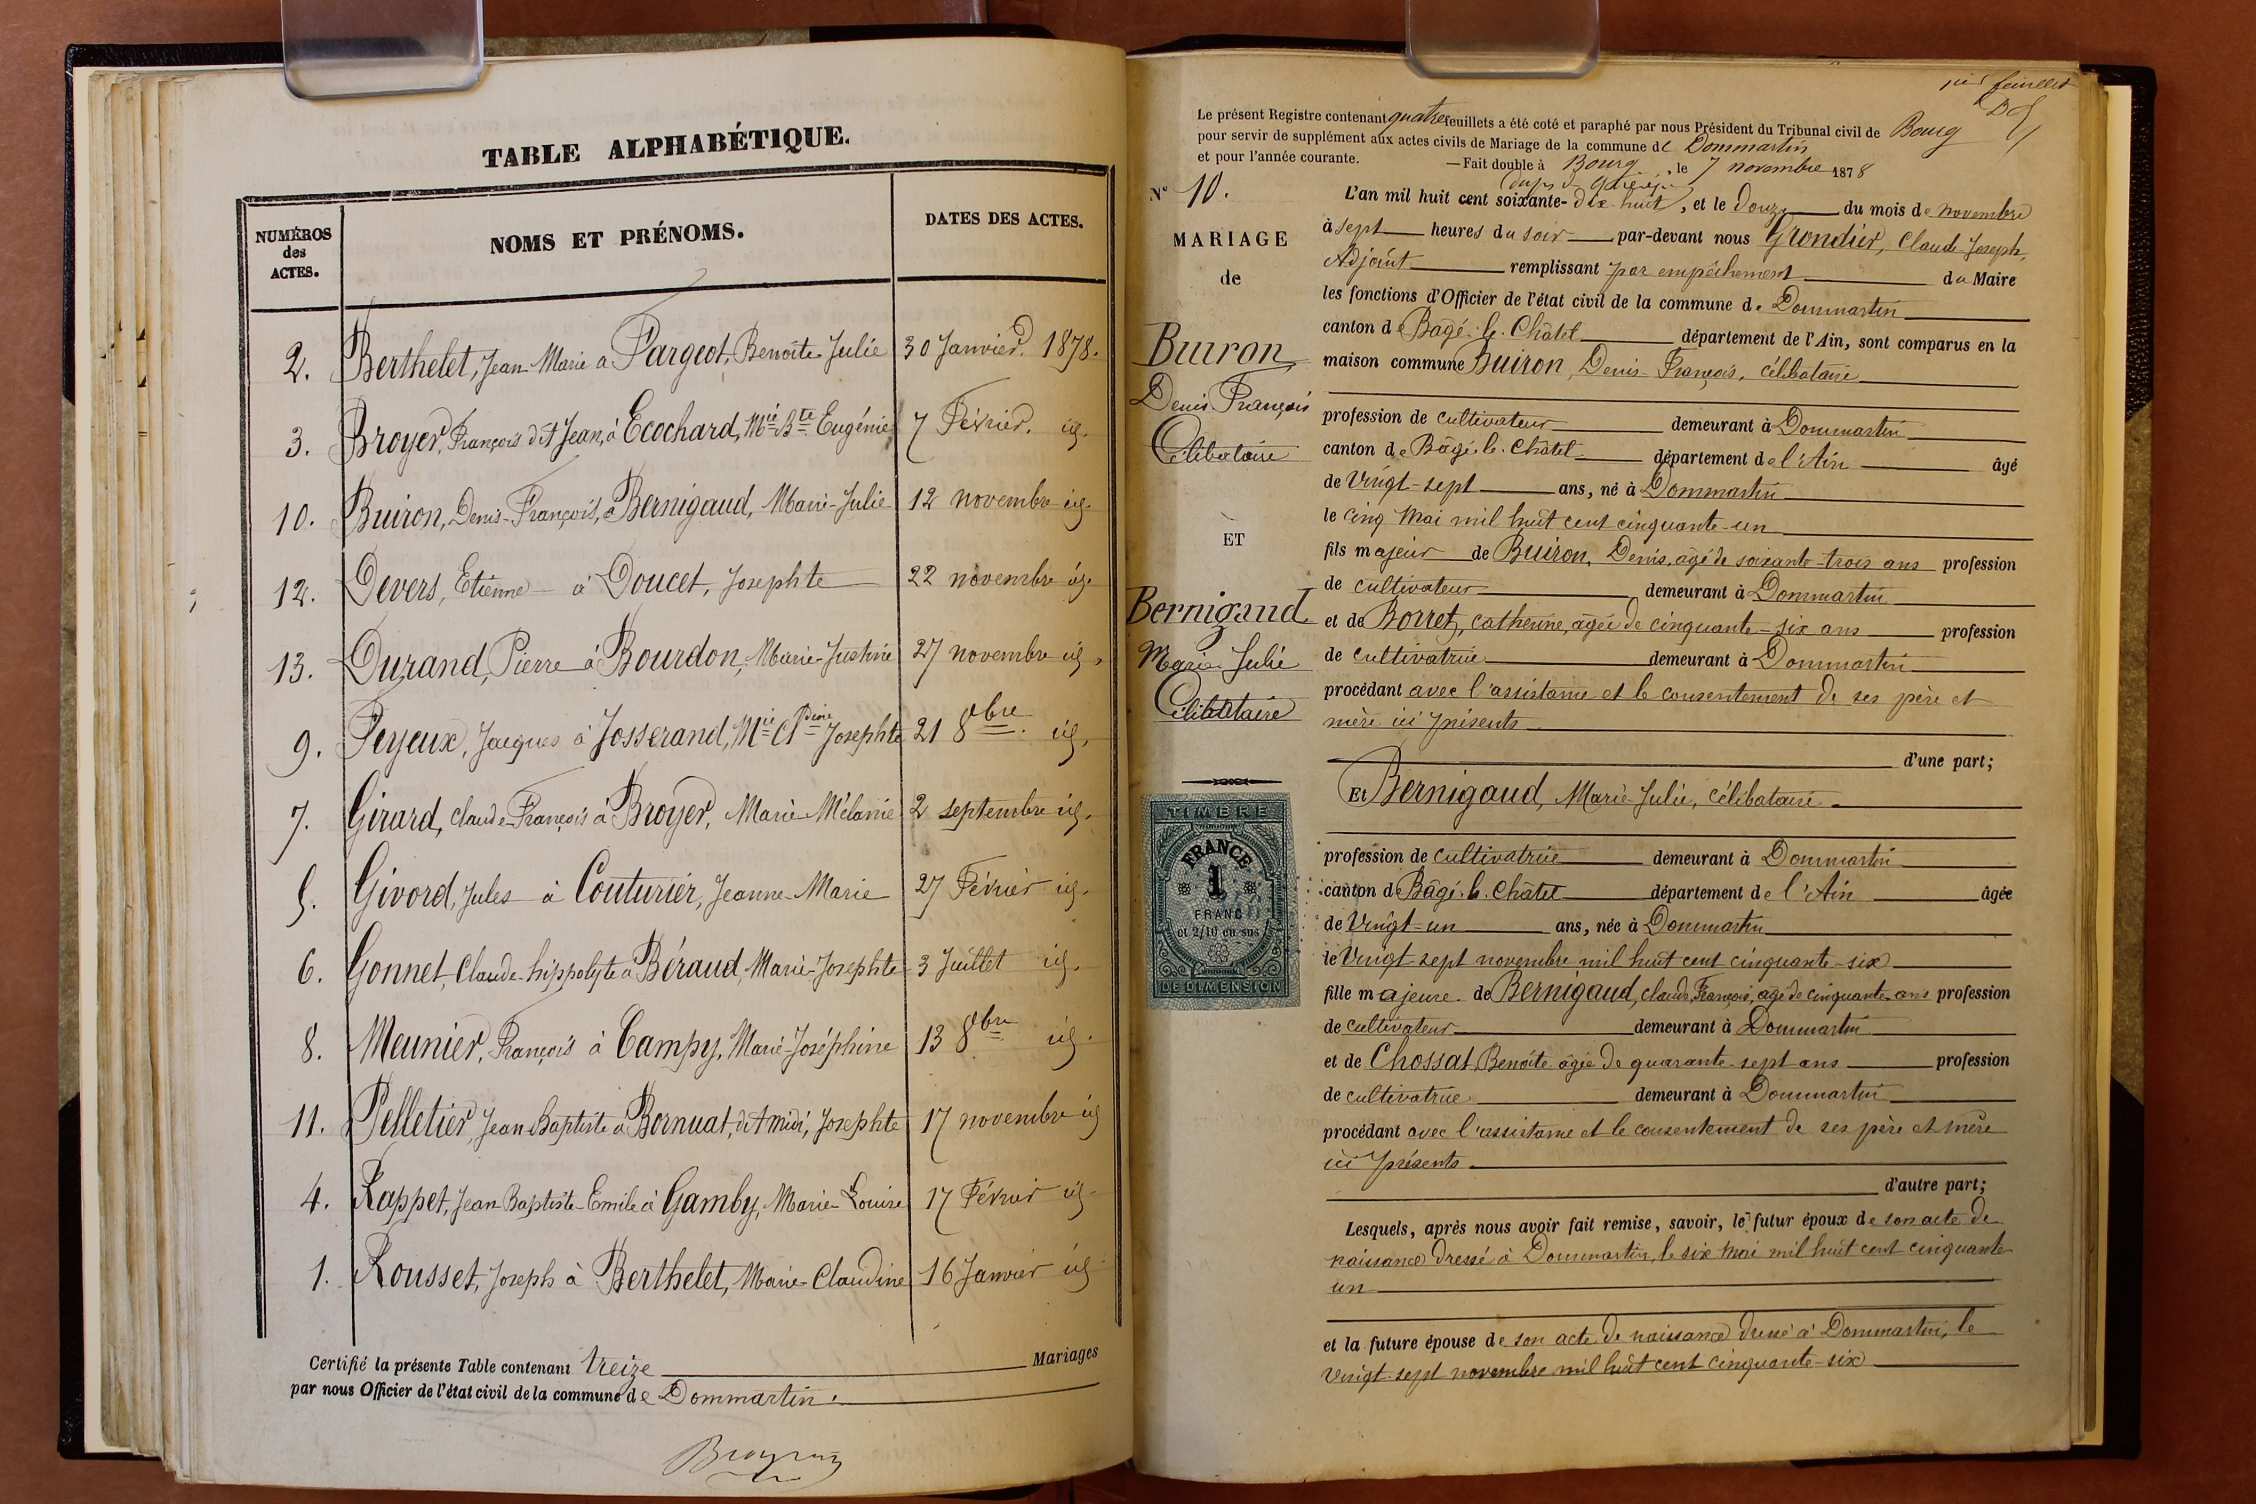 TABLE ALPHABÉTIQUE.
NUMÉROS des ACTES.
NOMS ET PRÉNOMS.
DATES DES ACTES.
2. Berthelet, Jean-Marie à Pargeot, Benoîte-Julie 30 Janvier. 1878.
3. Broyer, François dit Jean, à Ecochard, Mie Bte Eugénie 7 Février. id.
10. Buiron, Denis-François, à Bernigaud, Marie-Julie 12 novembre id.
12. Devers, Etienne à Doucet, Josephte 22 novembre id.
13. Durand, Pierre à Bourdon, Marie-Justine 27 novembre id.
9. Feyeux, Jacques à Josserand, Mie Cl Josephte 21 8bre. id.
7. Girard, Claude-François à Broyer, Marie-Mélanie 2 septembre id.
5. Givord, Jules à Couturier, Jeanne-Marie 27 Février id.
6. Gonnet, Claude-hippolyte à Béraud, Marie-Josephte 3 Juillet id.
8. Meunier, François à Campy, Marie-Joséphine 13 8bre id.
11. Pelletier, Jean Baptiste à Bornuat, dit midi, Josephte 17 novembre id
4. Rappet, Jean-Baptiste-Emile à Gamby, Marie-Louise 17 Février id
1. Rousset, Joseph à Berthelet, Marie-Claudine 16 Janvier id
Certifié la présente Table contenant treize Mariages
par nous Officier de l'état civil de la commune de Dommartin.
feuillet
Le présent Registre contenant quatre feuillets a été coté et paraphé par nous Président du Tribunal civil de Bourg
pour servir de supplément aux actes civils de Mariage de la commune de Dommartin
et pour l'année courante. — Fait double à Bourg, le 7 novembre 1878
N° 10.
MARIAGE
de
Buiron
Denis-François
Célibataire
ET
Bernigaud
Marie-Julie
Célibataire
TIMBRE
FRANCE
1
FRANC
et 2/10 en sus
DE DIMENSION
L'an mil huit cent soixante-dix-huit, et le douze du mois de novembre
à sept heures du soir par-devant nous Grondier, Claude-Joseph,
Adjoint remplissant par empêchement du Maire
les fonctions d'Officier de l'état civil de la commune de Dommartin
canton de Bâgé-le-Châtel département de l'Ain, sont comparus en la
maison commune Buiron, Denis-François, célibataire
profession de cultivateur demeurant à Dommartin
canton de Bâgé-le-Châtel département de l'Ain âgé
de Vingt-sept ans, né à Dommartin
le cinq Mai mil huit cent cinquante-un
fils majeur de Buiron, Denis, âgé de soixante-trois ans profession
de cultivateur demeurant à Dommartin
et de Borret, Catherine, âgée de cinquante-six ans profession
de cultivatrice demeurant à Dommartin
procédant avec l'assistance et le consentement de ses père et
mère ici présents
d'une part;
Et Bernigaud, Marie-Julie, célibataire
profession de cultivatrice demeurant à Dommartin
canton de Bâgé-le-Châtel département de l'Ain âgée
de Vingt-un ans, née à Dommartin
le Vingt-sept novembre mil huit cent cinquante-six
fille majeure de Bernigaud, Claude-François, âgé de cinquante ans profession
de cultivateur demeurant à Dommartin
et de Chossat, Benoîte âgée de quarante-sept ans profession
de cultivatrice demeurant à Dommartin
procédant avec l'assistance et le consentement de ses père et mère
ici présents
d'autre part;
Lesquels, après nous avoir fait remise, savoir, le futur époux de son acte de
naissance dressé à Dommartin, le six mai mil huit cent cinquante
un
et la future épouse de son acte de naissance dressé à Dommartin, le
vingt-sept novembre mil huit cent cinquante-six